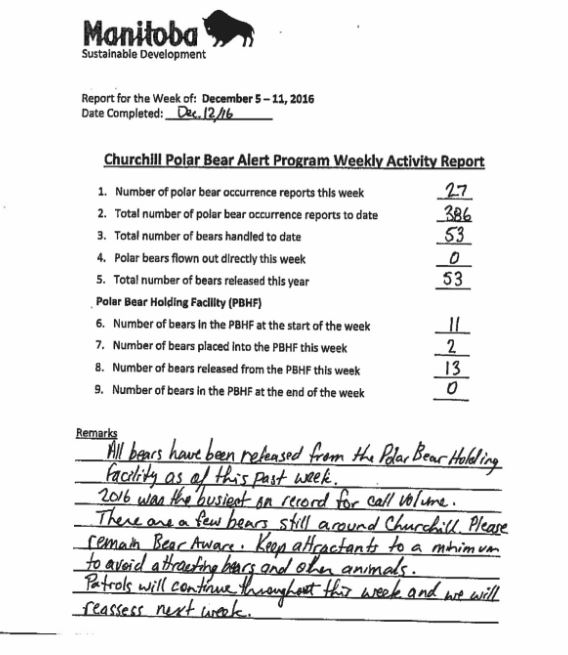 Manitoba
Sustainable Development
Report for the Week of: December 5 – 11, 2016
Date Completed: Dec. 12/16
Churchill Polar Bear Alert Program Weekly Activity Report
1. Number of polar bear occurrence reports this week 27
2. Total number of polar bear occurrence reports to date 386
3. Total number of bears handled to date 53
4. Polar bears flown out directly this week 0
5. Total number of bears released this year 53
Polar Bear Holding Facility (PBHF)
6. Number of bears in the PBHF at the start of the week 11
7. Number of bears placed into the PBHF this week 2
8. Number of bears released from the PBHF this week 13
9. Number of bears in the PBHF at the end of the week 0
Remarks
All bears have been released from the Polar Bear Holding
facility as of this past week.
2016 was the busiest on record for call volume.
There are a few bears still around Churchill. Please
remain Bear Aware. Keep attractants to a minimum
to avoid attracting bears and other animals.
Patrols will continue throughout this week and we will
reassess next week.